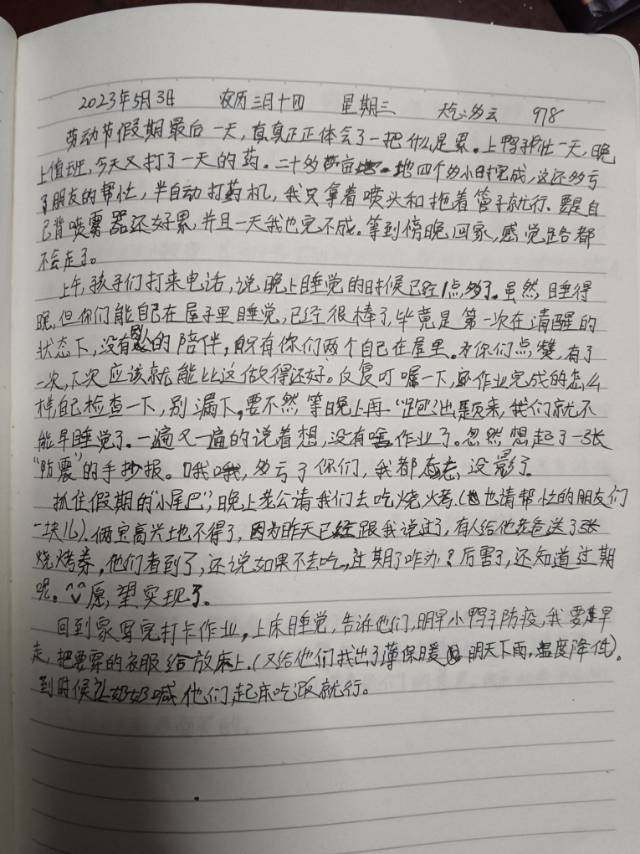 2023年5月3日 农历三月十四 星期三 天气:多云 978
劳动节假期最后一天,真真正正体会了一把什么是累。上鸭 一天,晚
上值班,今天又打了一天的药。二十多亩地四个多小时完成,这还多亏
了朋友的帮忙,半自动打药机,我只拿着喷头和拖着管子就行。要是自
己背喷雾器还好累,并且一天我也完不成。等到傍晚回家,感觉路都
不会走了。
上午,孩子们打来电话,说晚上睡觉的时候已经1点多了。虽然,睡得
晚,但你们能自己在屋子里睡觉,已经很棒了,毕竟是第一次在清醒的
状态下,没有 的陪伴,只有你们两个自己在屋里。为你们点赞,有了
一次,下次应该就能比这做得还好。反复叮嘱一下,作业完成的怎么
样自己检查一下,别漏下,要不然等晚上再“跑”出题来,我们就不
能早睡觉了。一遍又一遍的说着想,没有啥作业了。忽然想起了一张
“防震”的手抄报。哦哦,多亏了你们,我都 没影了。
抓住假期的“小尾巴”,晚上老公请我们去吃烧烤。(也请帮忙的朋友们
一块儿)。俩宝高兴地不得了,因为昨天已经跟我说过了,有人给他爸爸送了张
烧烤券,他们看到了,还说如果不去吃,过期了咋办?厉害了,还知道过期
呢。^^愿望实现了。
回到家写完打卡作业,上床睡觉,告诉他们,明早小鸭子防疫,我要早
走,把要穿的衣服给放床上。(又给他们找出了薄保暖 明天下雨,温度降低)。
到时候让奶奶喊他们,起床吃饭就行。